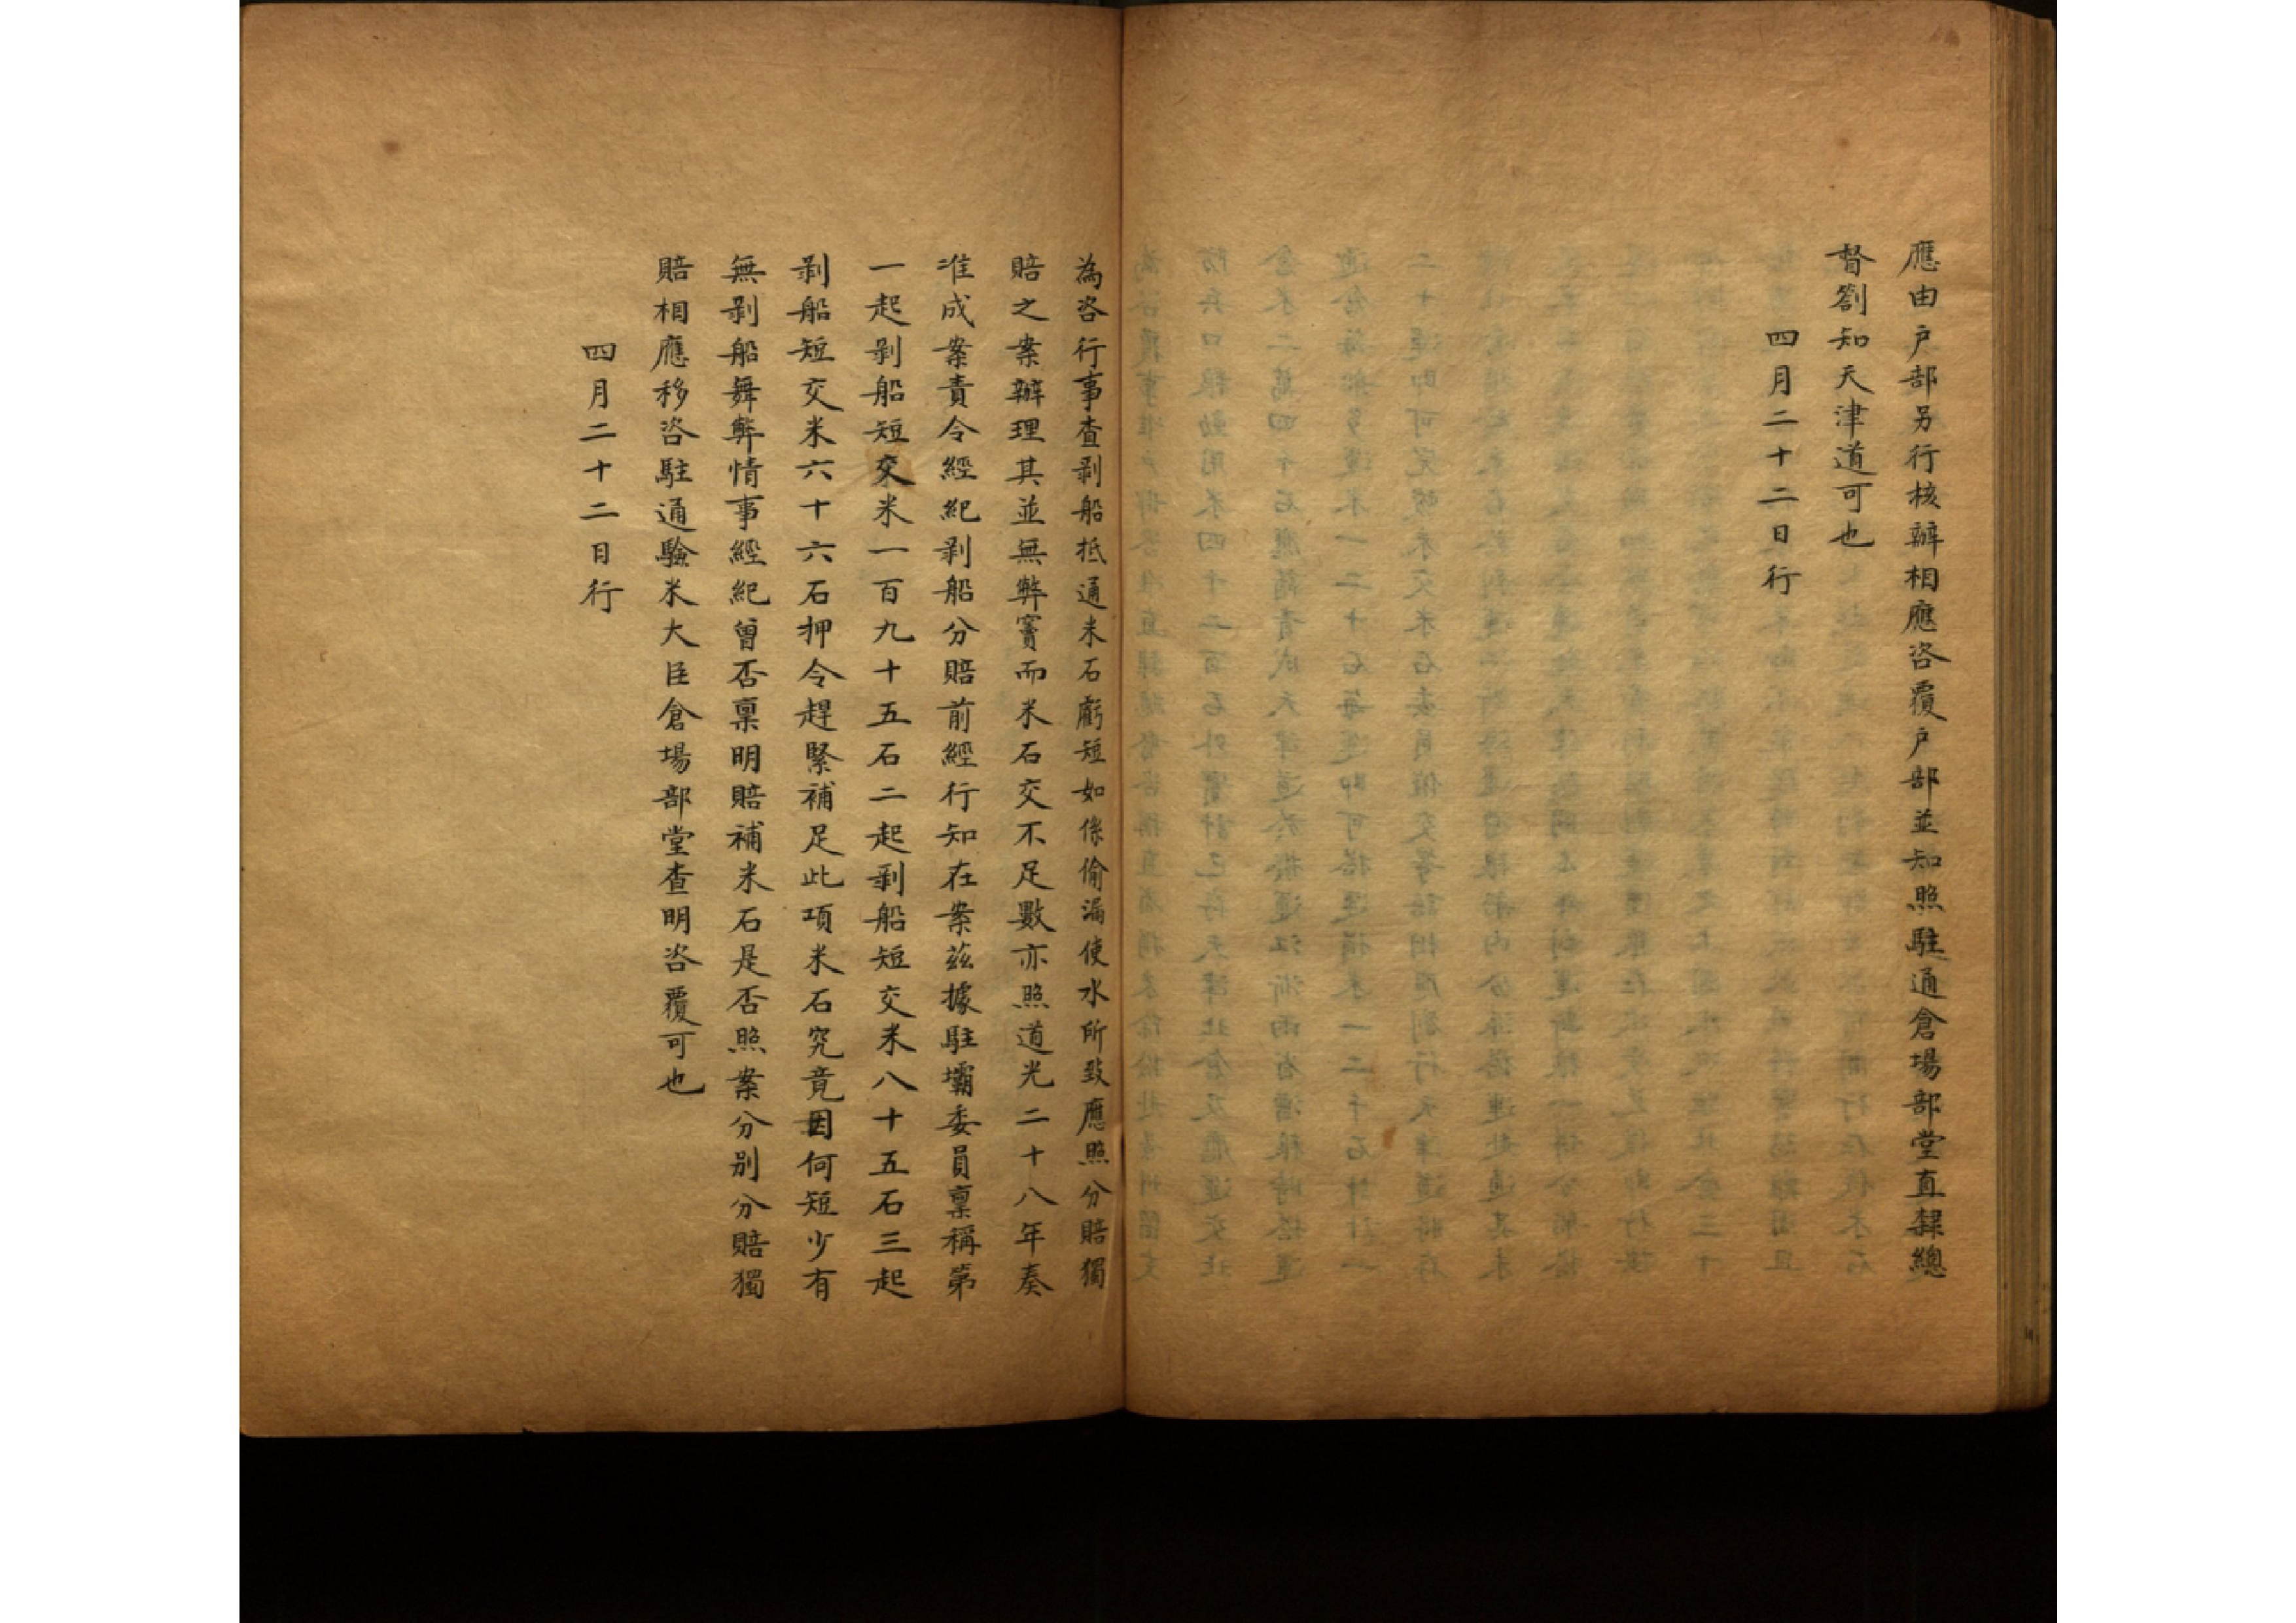 應由戶部另行核辦相應咨覆戶部並知照駐通倉場部堂直隸總
督劄知天津道可也
四月二十二日行
為咨行事查剥船抵通米石虧短如係偷漏使水所致應照分賠獨
賠之案辦理其並無弊竇而米石交不足數亦照道光二十八年奏
准成案責令經紀剥船分賠前經行知在案茲據駐壩委員稟稱第
一起剥船短交米一百九十五石二起剥船短交米八十五石三起
剥船短交米六十六石押令趕緊補足此項米石究竟因何短少有
無剥船舞弊情事經紀曾否稟明賠補米石是否照案分別分賠獨
賠相應移咨駐通驗米大臣倉場部堂查明咨覆可也
四月二十二日行